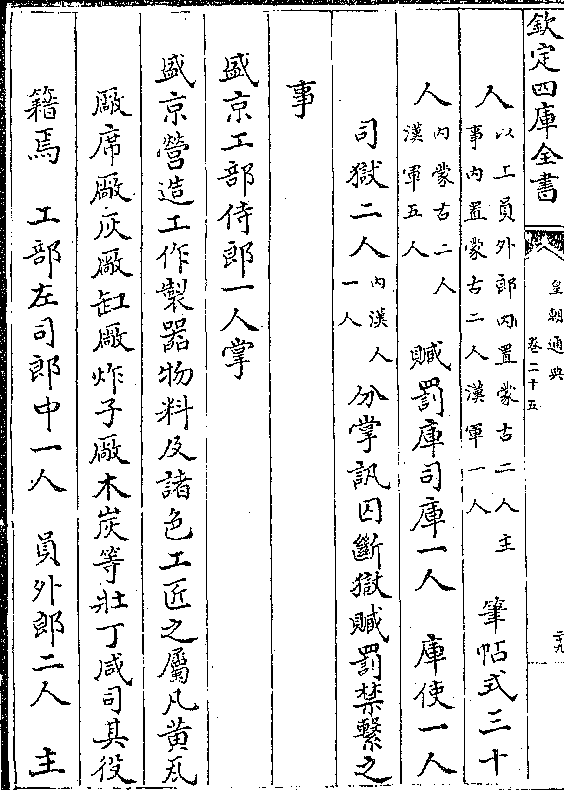 欽定四庫全書
皇朝通典
卷二十五
二十九
人以工員外郎內置蒙古二人主
事內置蒙古二人漢軍一人筆帖式三十
人內蒙古二人
漢軍五人贓罰庫司庫一人　庫使一人
司獄二人內漢人
一人分掌訊囚斷獄贓罰禁繫之
事
盛京工部侍郎一人掌
盛京營造工作製器物料及諸色工匠之屬凡黃瓦
廠席廠灰廠缸廠炸子廠木炭等壯丁咸司其役
籍焉　工部左司郎中一人　員外郎二人　主